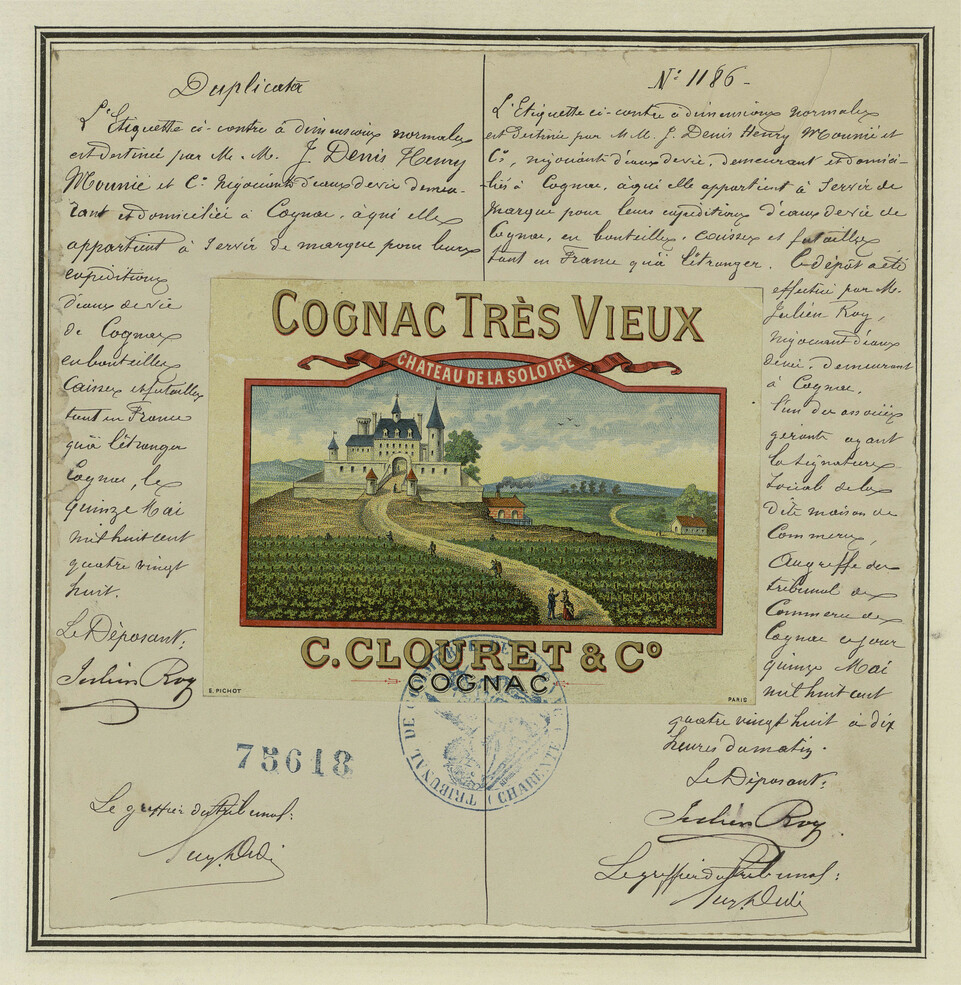 Duplicata
L'Etiquette ci-contre à dimensions normales
est destinée par M. M. J Denis Henry
Mounié et Co Négociants d'eaux de vie demeu-
rant et domiciliés à Cognac, à qui elle
appartient à servir de marque pour leurs
expéditions
d'eaux de vie
de Cognac
en bouteilles
Caisses et futailles
tant en France
qu'à l'étranger
Cognac, le
Quinze Mai
mil huit cent
quatre vingt
huit.
Le Déposant:
Julien Roy
75618
Le greffier du tribunal:
No 1186-
L'Etiquette ci-contre à dimensions normales
est destinée par M.M. J. Denis Henry Mounié et
Co, négociants d'eaux de vie, demeurant et domici-
-liés à Cognac, à qui elle appartient à servir de
marque pour leurs expéditions d'eaux de vie de
Cognac, en bouteilles, caisses et futailles
tant en France qu'à l'étranger. Le dépôt a été
effectué par M.
Julien Roy,
négociant d'eaux
de vie, demeurant
à Cognac,
l'un des associés
gérants ayant
la signature
social de la
Dite maison de
Commerce,
Au greffe du
tribunal de
Commerce de
Cognac ce jour
quinze Mai
mil huit cent
quatre vingt huit à dix
heures du matin.
Le Déposant:
Julien Roy
Le greffier du tribunal:
COGNAC TRÈS VIEUX
CHATEAU DE LA SOLOIRE
C. CLOURET & Co
COGNAC
E. PICHOT
PARIS
TRIBUNAL DE COMMERCE DE
CHARENTE